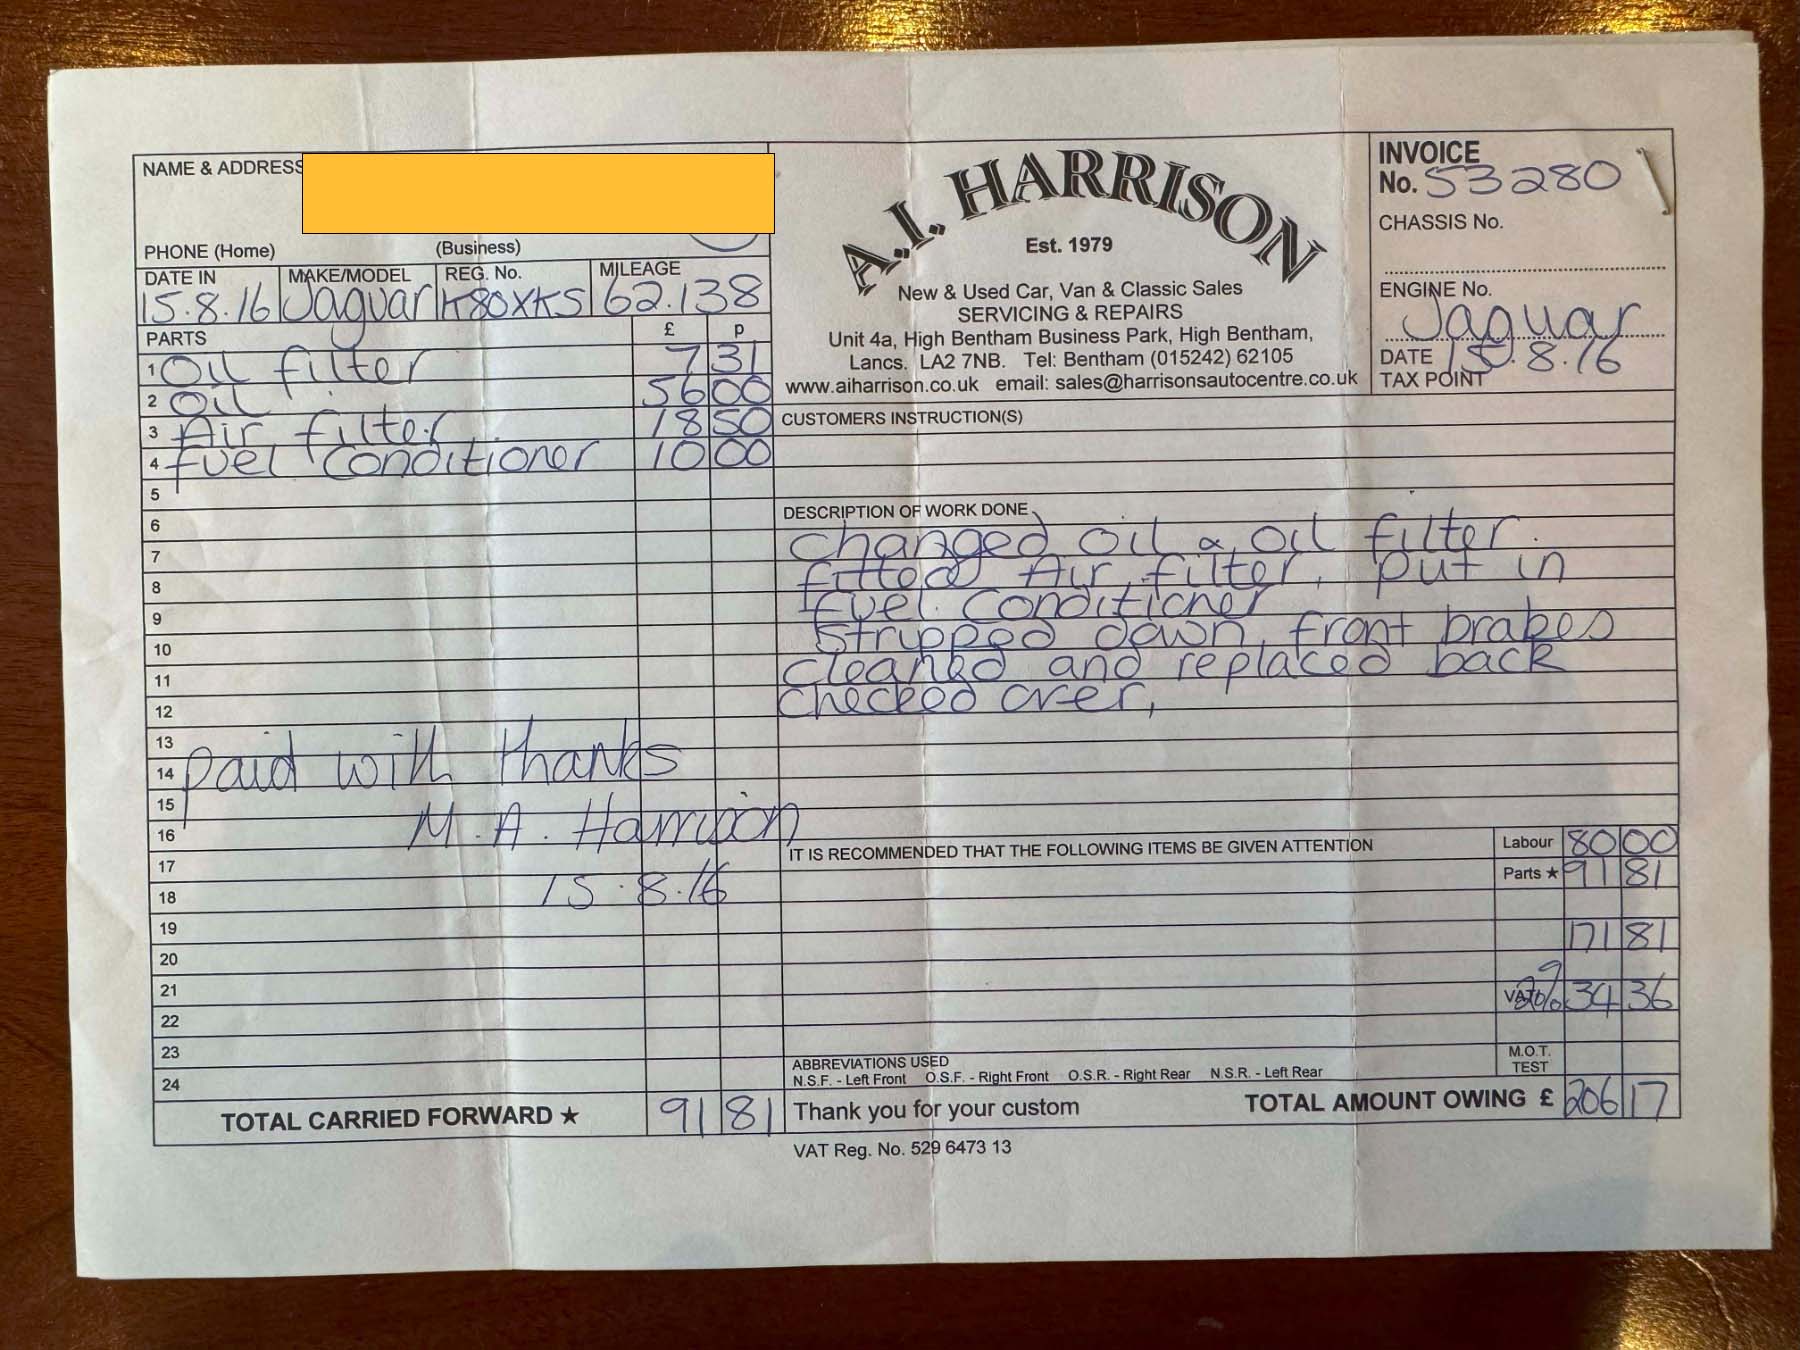 NAME & ADDRESS
PHONE (Home) (Business)
DATE IN MAKE/MODEL REG. No. MILEAGE
15.8.16 Jaguar K80XKS 62.138
PARTS £ p
1 Oil filter 7 31
2 Oil 56 00
3 Air filter 18 50
4 fuel conditioner 10 00
5
6
7
8
9
10
11
12
13
14 paid with thanks
15
16 M. A. Harrison
17
18 15.8.16
19
20
21
22
23
24
TOTAL CARRIED FORWARD ★ 91 81
A.I. HARRISON
Est. 1979
New & Used Car, Van & Classic Sales
SERVICING & REPAIRS
Unit 4a, High Bentham Business Park, High Bentham,
Lancs. LA2 7NB. Tel: Bentham (015242) 62105
www.aiharrison.co.uk email: sales@harrisonsautocentre.co.uk
INVOICE
No. 53280
CHASSIS No.
ENGINE No.
Jaguar
DATE 15.8.16
TAX POINT
CUSTOMERS INSTRUCTION(S)
DESCRIPTION OF WORK DONE
Changed oil & oil filter.
fitted Air filter, put in
fuel conditioner
Stripped down front brakes
cleaned and replaced back
checked over,
IT IS RECOMMENDED THAT THE FOLLOWING ITEMS BE GIVEN ATTENTION
Labour 80 00
Parts ★ 91 81
171 81
VAT 20% 34 36
M.O.T.
TEST
ABBREVIATIONS USED
N.S.F. - Left Front O.S.F. - Right Front O.S.R. - Right Rear N.S.R. - Left Rear
Thank you for your custom TOTAL AMOUNT OWING £ 206 17
VAT Reg. No. 529 6473 13